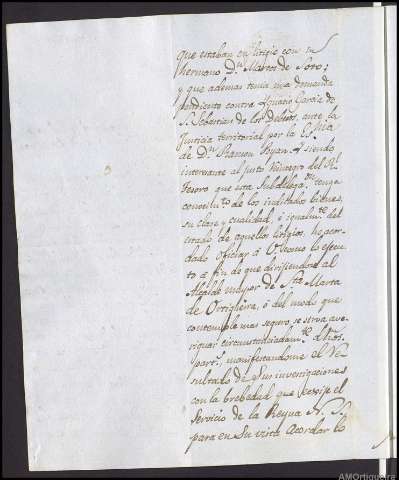 que estaban en litigio con su
hermano D.n Marcos de Soto;
y que ademas tenia una demanda
pendiente contra Ignacio Garcia de
S. Seberian de los Deboos, ante la
Justicia territorial por la
de D.n Ramon Buan. Y siendo
interesante al justo Reintegro del R.l
Tesoro que esta Subdeleg.on tenga
conocim.to de los indicados bienes,
su clase y cualidad, é igualm.te del
estado de aquellos litigios, he acor-
dado oficiar á V. como lo efecu-
to á fin de que dirijiendose al
Alcalde mayor de S.ta Marta
de Ortigueira, ó del modo que
contemple mas seguro, se sirva ave-
riguar circunstanciadam.te dhos
part.s, manifestandome el Re-
sultado de sus investigaciones
con la brebedad que exsije el
Servicio de la Reyna N. S.
para en Su vista acordar lo
AMOrtigueira